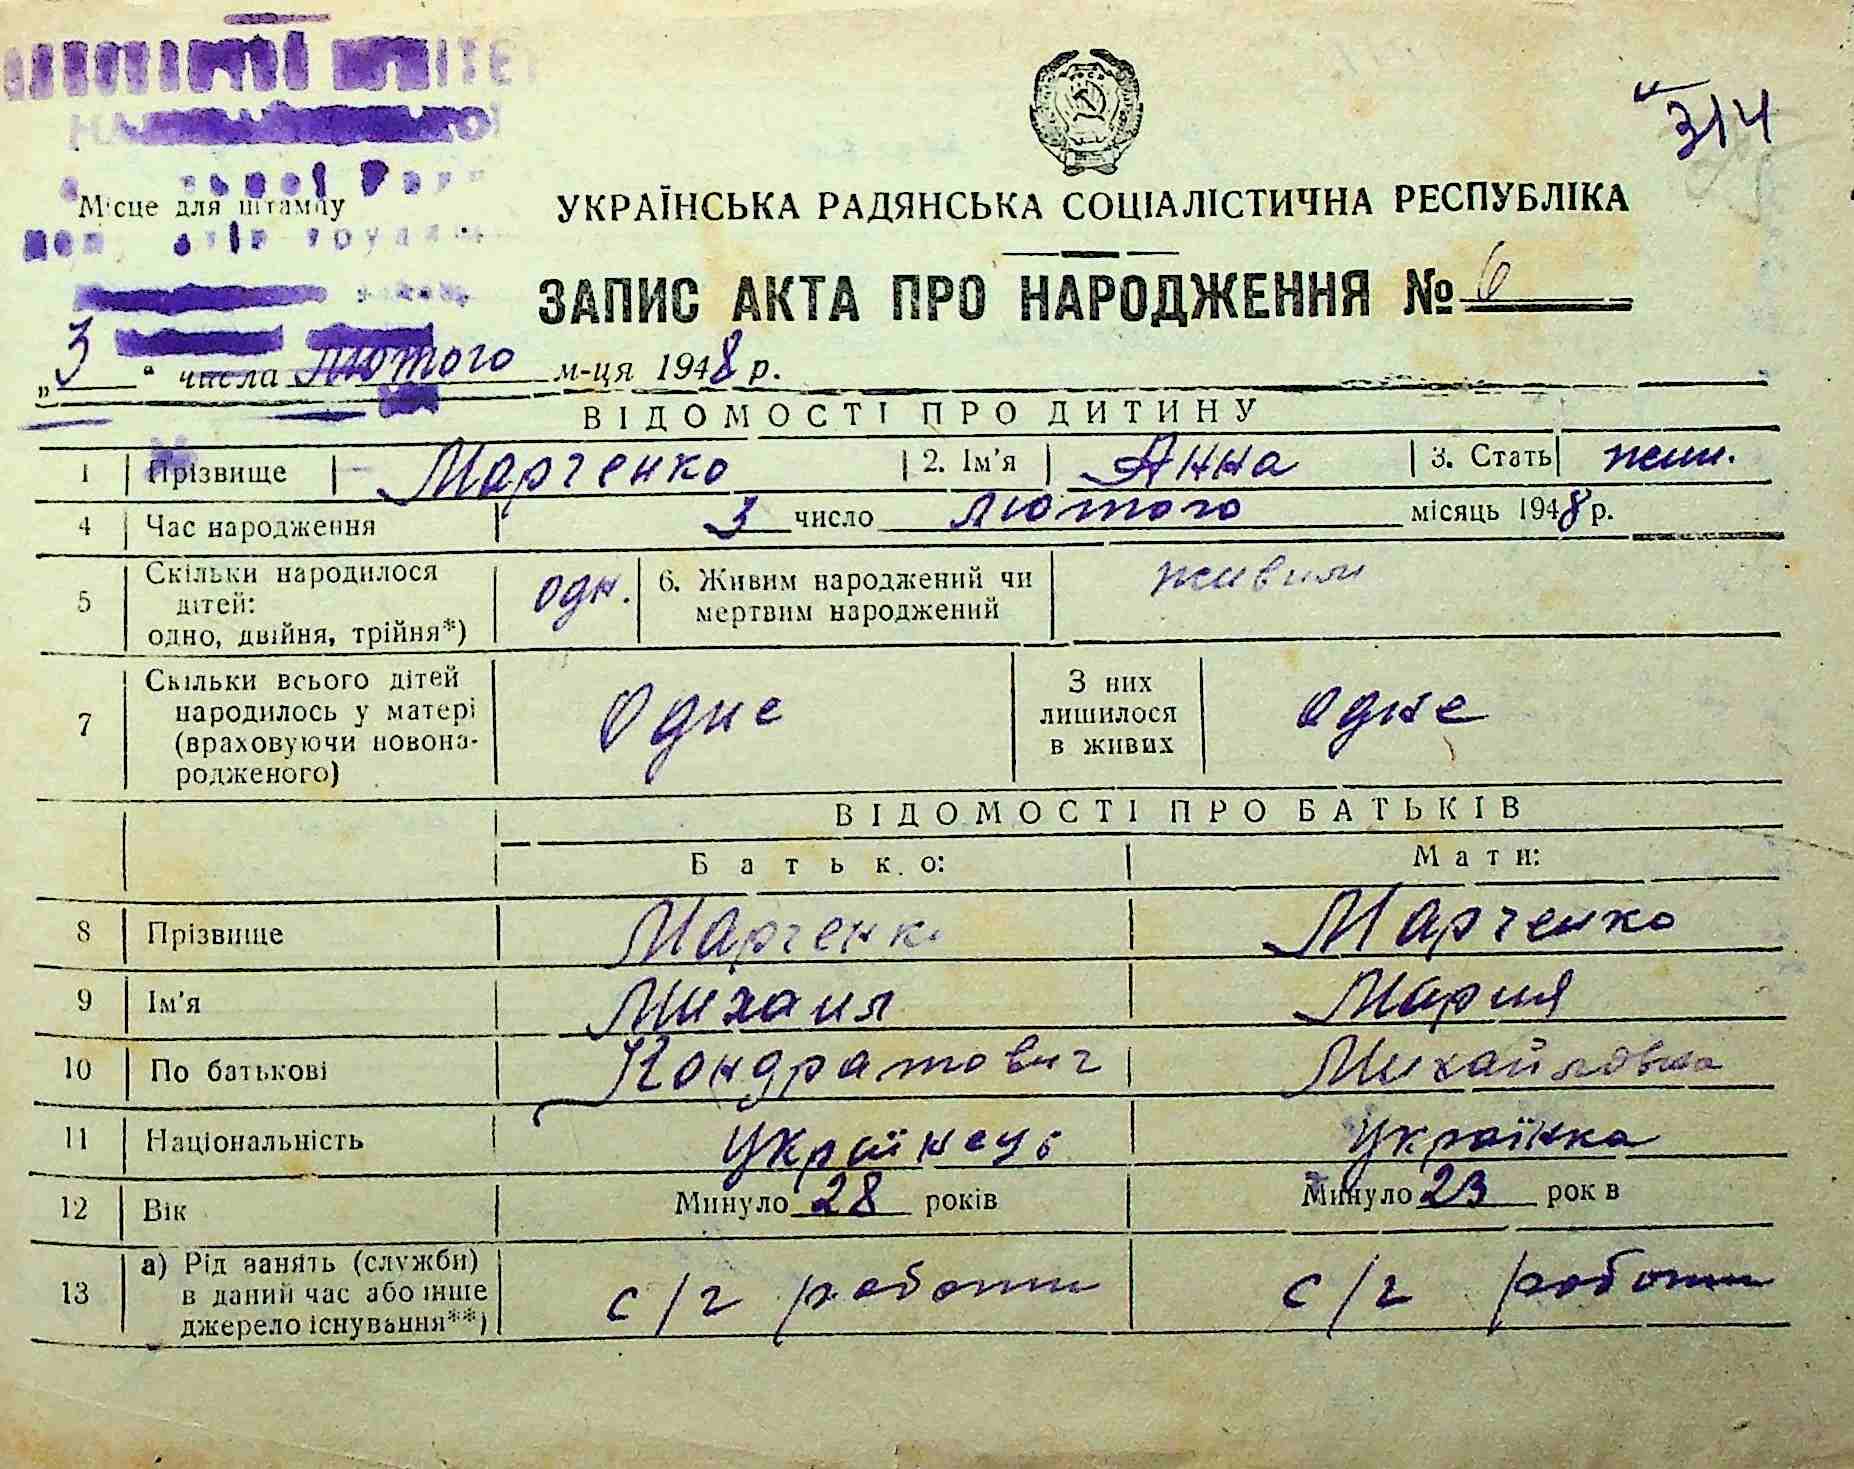 314
УКРАЇНСЬКА РАДЯНСЬКА СОЦІАЛІСТИЧНА РЕСПУБЛІКА
Місце для штампу
ЗАПИС АКТА ПРО НАРОДЖЕННЯ № 6
„3“ числа Лютого м-ця 1948 р.
ВІДОМОСТІ ПРО ДИТИНУ
1 Прізвище Марченко 2. Ім'я Анна 3. Стать жин.
4 Час народження 3 число лютого місяць 1948 р.
5 Скільки народилося дітей: одно, двійня, трійня*) одн. 6. Живим народжений чи мертвим народжений живим
7 Скільки всього дітей народилось у матері (враховуючи новонародженого) Одне З них лишилося в живих одне
ВІДОМОСТІ ПРО БАТЬКІВ
Батько: Мати:
8 Прізвище Марченко Марченко
9 Ім'я Михаил Мария
10 По батькові Кондратович Михайловна
11 Національність Українець Українка
12 Вік Минуло 28 років Минуло 23 років
13 а) Рід занять (служби) в даний час або інше джерело існування**) с/г роботи с/г роботи